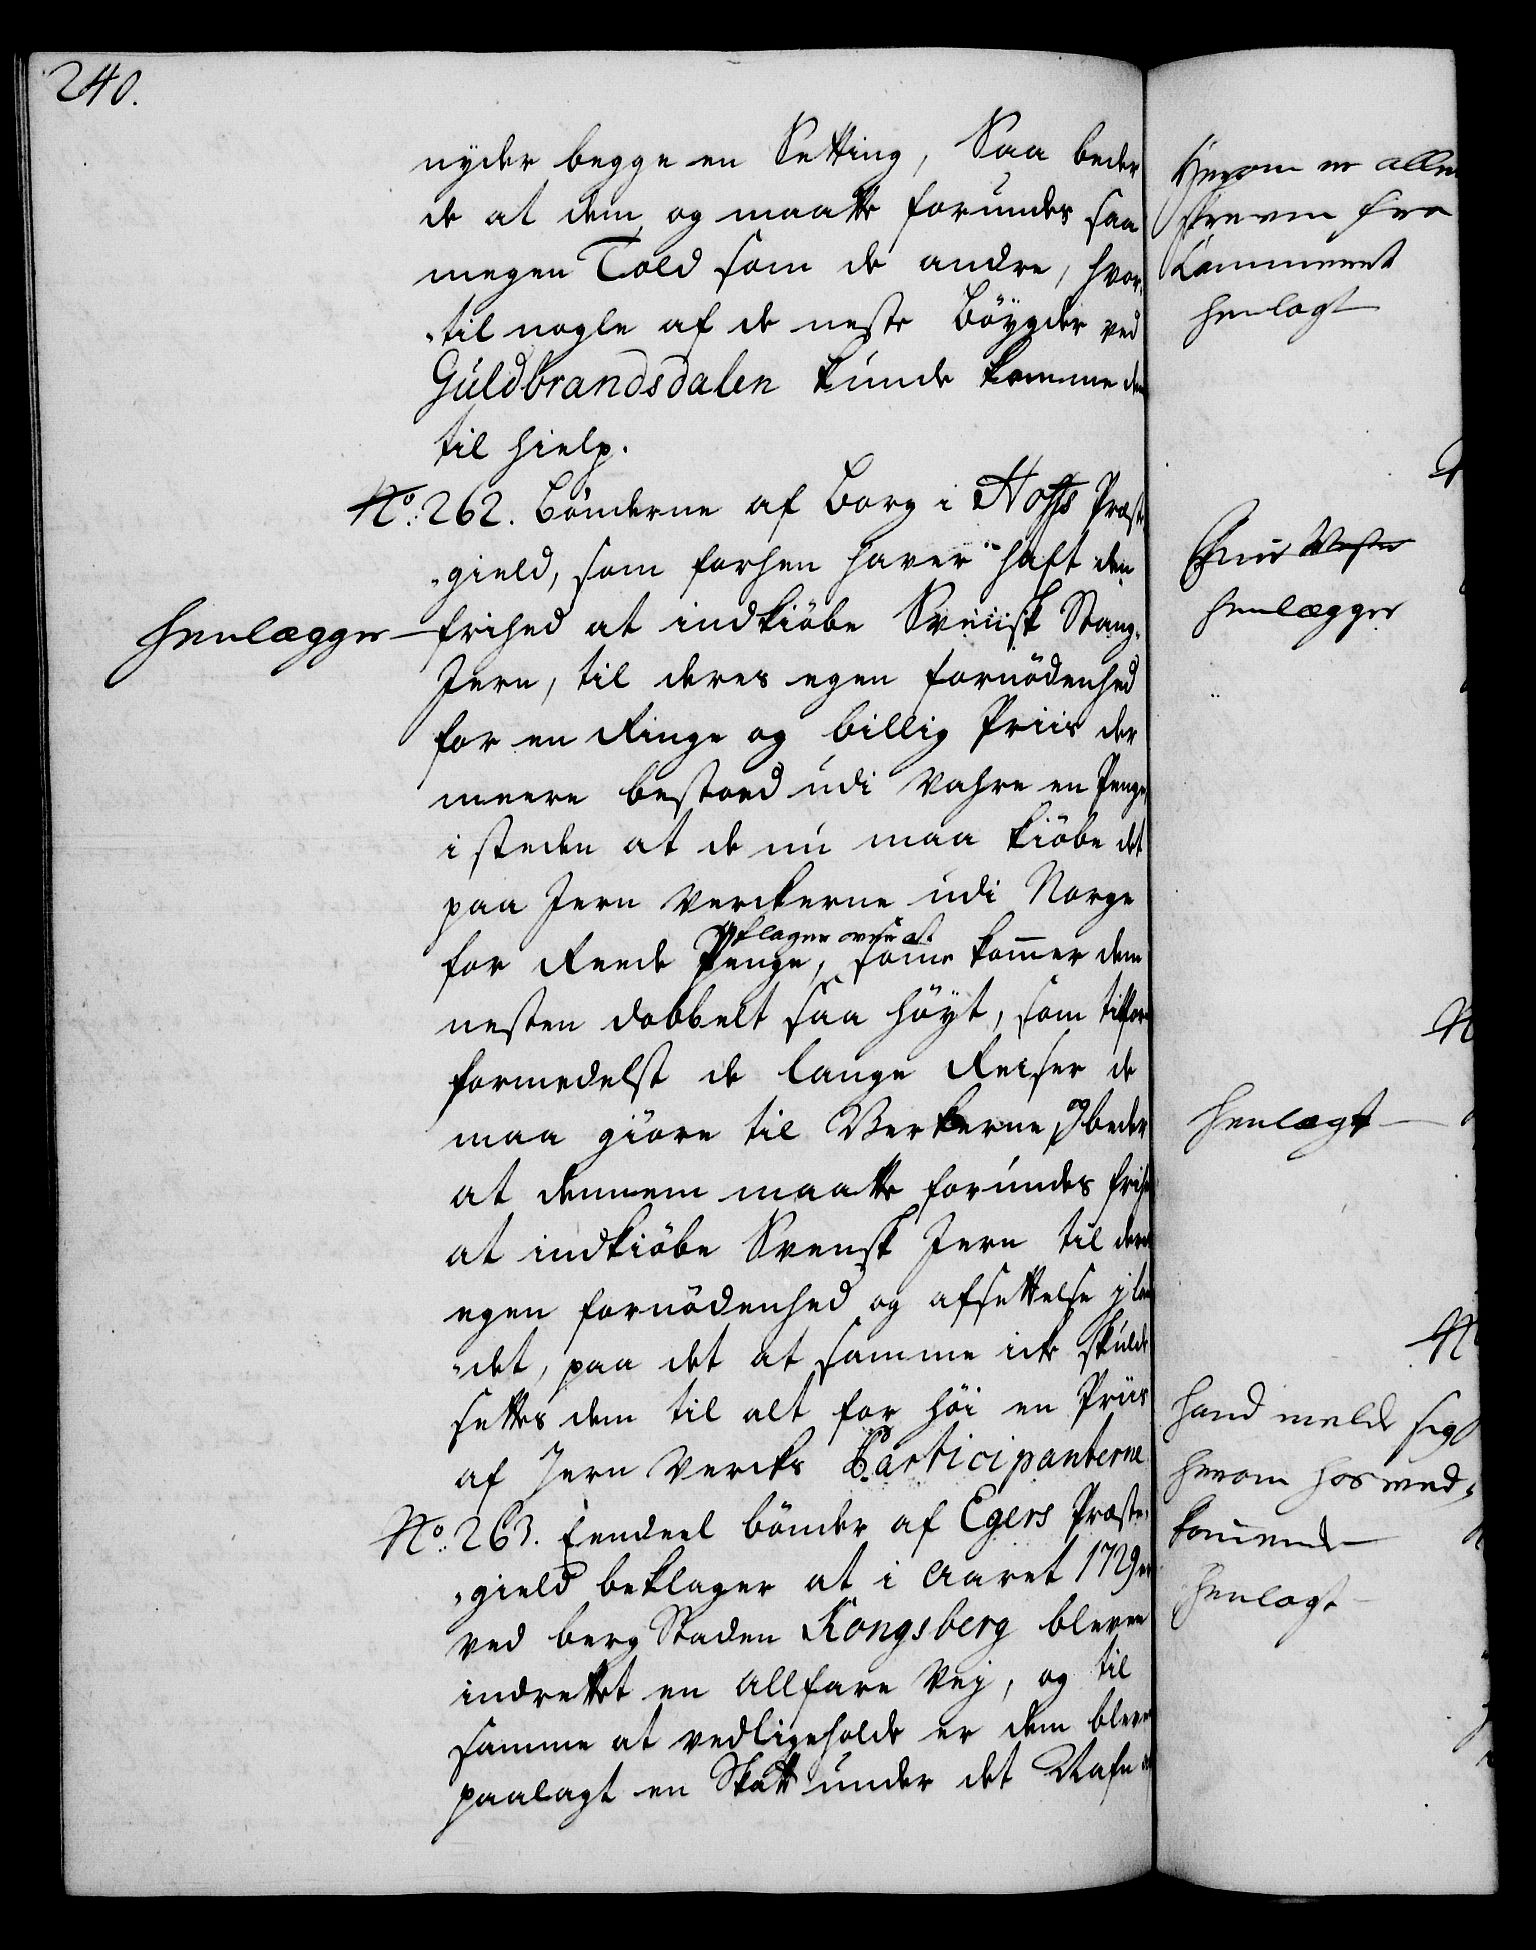 240.
nyder begge en Setting, Saa beder
de at dem og maatte forundes saa
megen Told som de andre, hvor-
-til nogle af de neste Böygder ved
Guldbrandsdalen kunde komme dem
til hielp.
No. 262. Bönderne af Borg i Hoffs Præste
-gield, som forhen haver haft den
henlegges
frihed at indkiöbe Sveiisk Stang-
Jern, til deres egen fornödenhed
for en Ringe og billig Priis der
meere bestoed udi Vahre en Penge
i steden at de nu maa kiöbe det
paa Jern Verckerne udi Norge
klager over at
for Reede Penge, som kommer dem
nesten dobbelt saa höyt, som tilfor
formedelst de lange Reiser de
maa giöre til Verkerne, og beder
at dennem maatte forundes frihed
at indkiöbe Svensk Jern til deres
egen fornödenhed og afsettelse j lan
-det, paa det at samme icke skulde
settes dem til alt for höi en Priis
af Jern Vercks Participanterne
No. 263. Eendeel bönder af Egers Præste-
-gield beklager at i Aaret 1729 er
ved berg Staden Kongsberg bleven
indrettet en Allfare Vej, og til
samme at vedligeholde er dem bleven
paalagt en Skatt under det Nafn
Herom er alle
skreven fra
Cammeret
henlagt
henlægges
henlagt
hand melde sig
herom hos ved-
kommende
henlagt